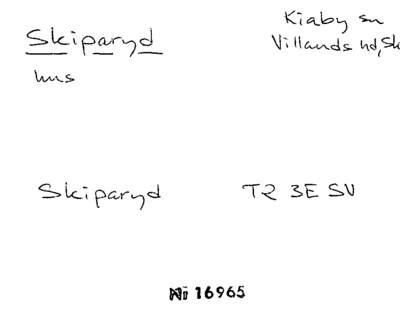 Skiparyd
Kiaby sn
Villands hd, Sk
hus
Skiparyd
T2 3E SV
Ni 16965